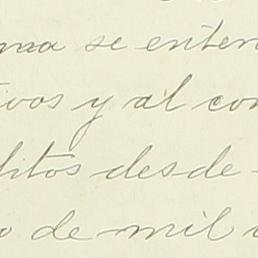 ma se enten
ivos y al con
ditos desde
o de mil